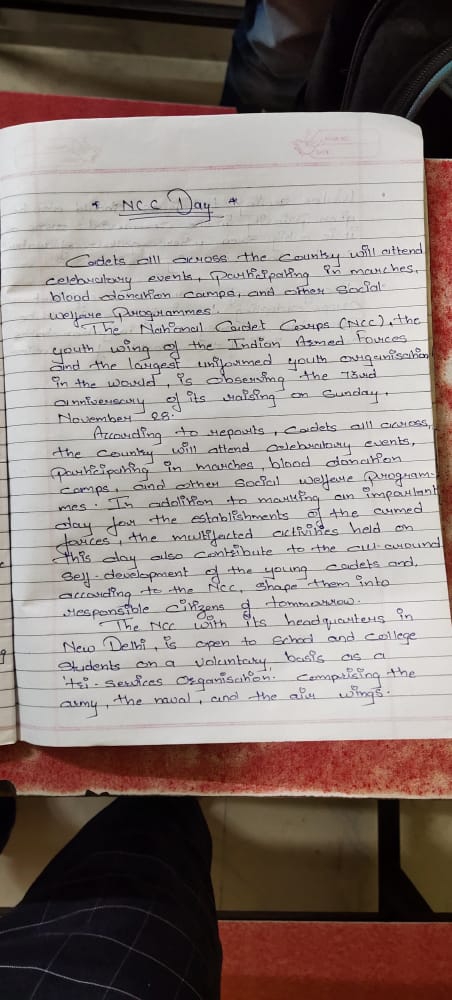 * NCC Day *
Cadets all across the country will attend
celebratory events, participating in marches,
blood donation camps, and other social
welfare programmes.
The National Cadet Corps (NCC), the
youth wing of the Indian Armed Forces
and the largest uniformed youth organisation
in the world, is observing the 73rd
anniversary of its raising on Sunday,
November 28.
According to reports, cadets all across,
the country will attend celebratory events,
participating in marches, blood donation
camps, and other social welfare program-
mes. In addition to marking an important
day for the establishments of the armed
forces, the multifacted activities held on
this day also contribute to the all-around
self-development of the young cadets and,
according to the NCC, shape them into
responsible citizens of tommorrow.
The NCC with its headquarters in
New Delhi, is open to school and college
students on a voluntary, basis as a
'tri-services Organisation. comprising the
army, the naval, and the air wings.